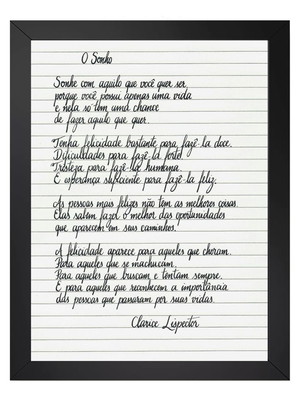 O Sonho
Sonhe com aquilo que você quer ser,
porque você possui apenas uma vida
e nela só tem uma chance
de fazer aquilo que quer.
Tenha felicidade bastante para fazê-la doce.
Dificuldades para fazê-la forte.
Tristeza para fazê-la humana.
E esperança suficiente para fazê-la feliz.
As pessoas mais felizes não tem as melhores coisas.
Elas sabem fazer o melhor das oportunidades
que aparecem em seus caminhos.
A felicidade aparece para aqueles que choram.
Para aqueles que se machucam.
Para aqueles que buscam e tentam sempre.
E para aqueles que reconhecem a importância
das pessoas que passaram por suas vidas.
Clarice Lispector